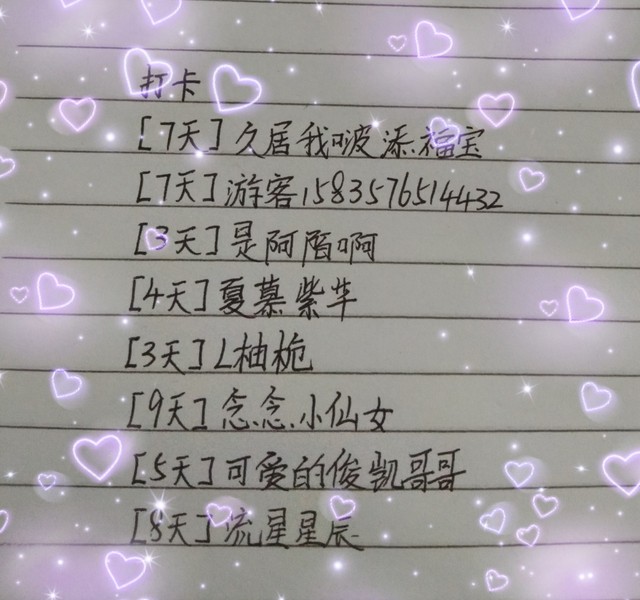 打卡
[7天]久居我啵添福宝
[7天]游客1583576514432
[3天]是阿陌啊
[4天]夏慕紫芊
[3天]L柚桅
[9天]念念小仙女
[5天]可爱的俊凯哥哥
[8天]流星星辰